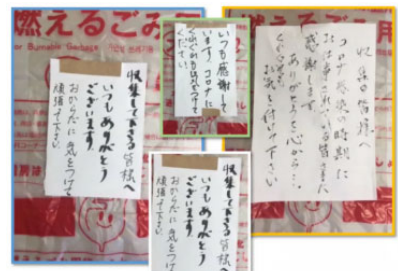 燃えるごみ
for Burnable Garbage
収集して下さる皆様へ
いつもありがとう
ございます。
おからだに気をつけて
頑張って下さい。
いつも感謝して
います。コロナに
くれぐれも気をつけて
ください。
用
収集の皆様へ
コロナ感染の時期に
お仕事されている皆さまに
感謝します。
ありがとう 心から
お気を付け下さい
収集して下さる皆様へ
いつもありがとう
ございます。
おからだに気をつけて
頑張って下さい。